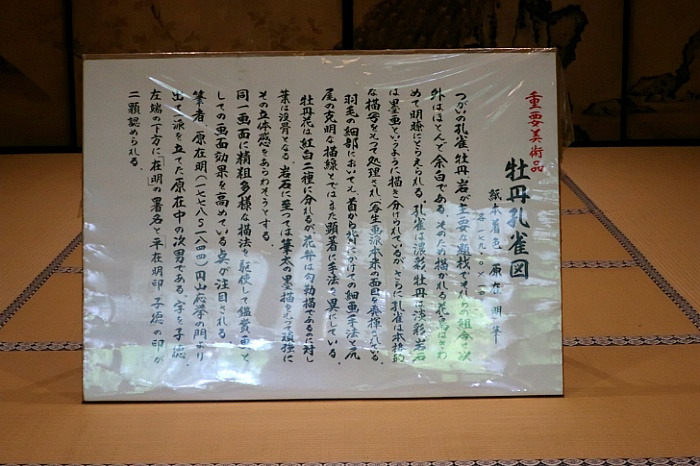 重要美術品
牡丹孔雀図
紙本着色 原在明筆
つがの孔雀、牡丹、岩が主要な題材で、それらの組合せ以
外はほとんど余白である。そのため描かれる花、鳥はきわ
めて明瞭にとらえられる。孔雀は濃彩、牡丹は淡彩、岩石
は墨画というように描き分けられているが、さらに孔雀は本格的
な描写をもって処理され(写生画派本来の面目を発揮している。
羽毛の細部においてえ、首から背にかけての細画手法と尾
尾の克明な描線とではまた顕著に手法を異にしている。
牡丹花は紅白二種に分れるが、花弁は勾勒描であるに対し
葉は没骨となる。岩石に至っては筆太の墨描をもって頑強に
その立体感をあらわそうとする。
同一画面に精粗多様な描法を駆使して鑑賞画と
しての画面効果を高めている点が注目される。
筆者、原在明(一七七八〜一八四四)円山応挙の門より
出て一派を立てた原在中の次男である。字を子徳、
左端の下方に「在明」の署名と平在明印、子徳の印が
二顆認められる。